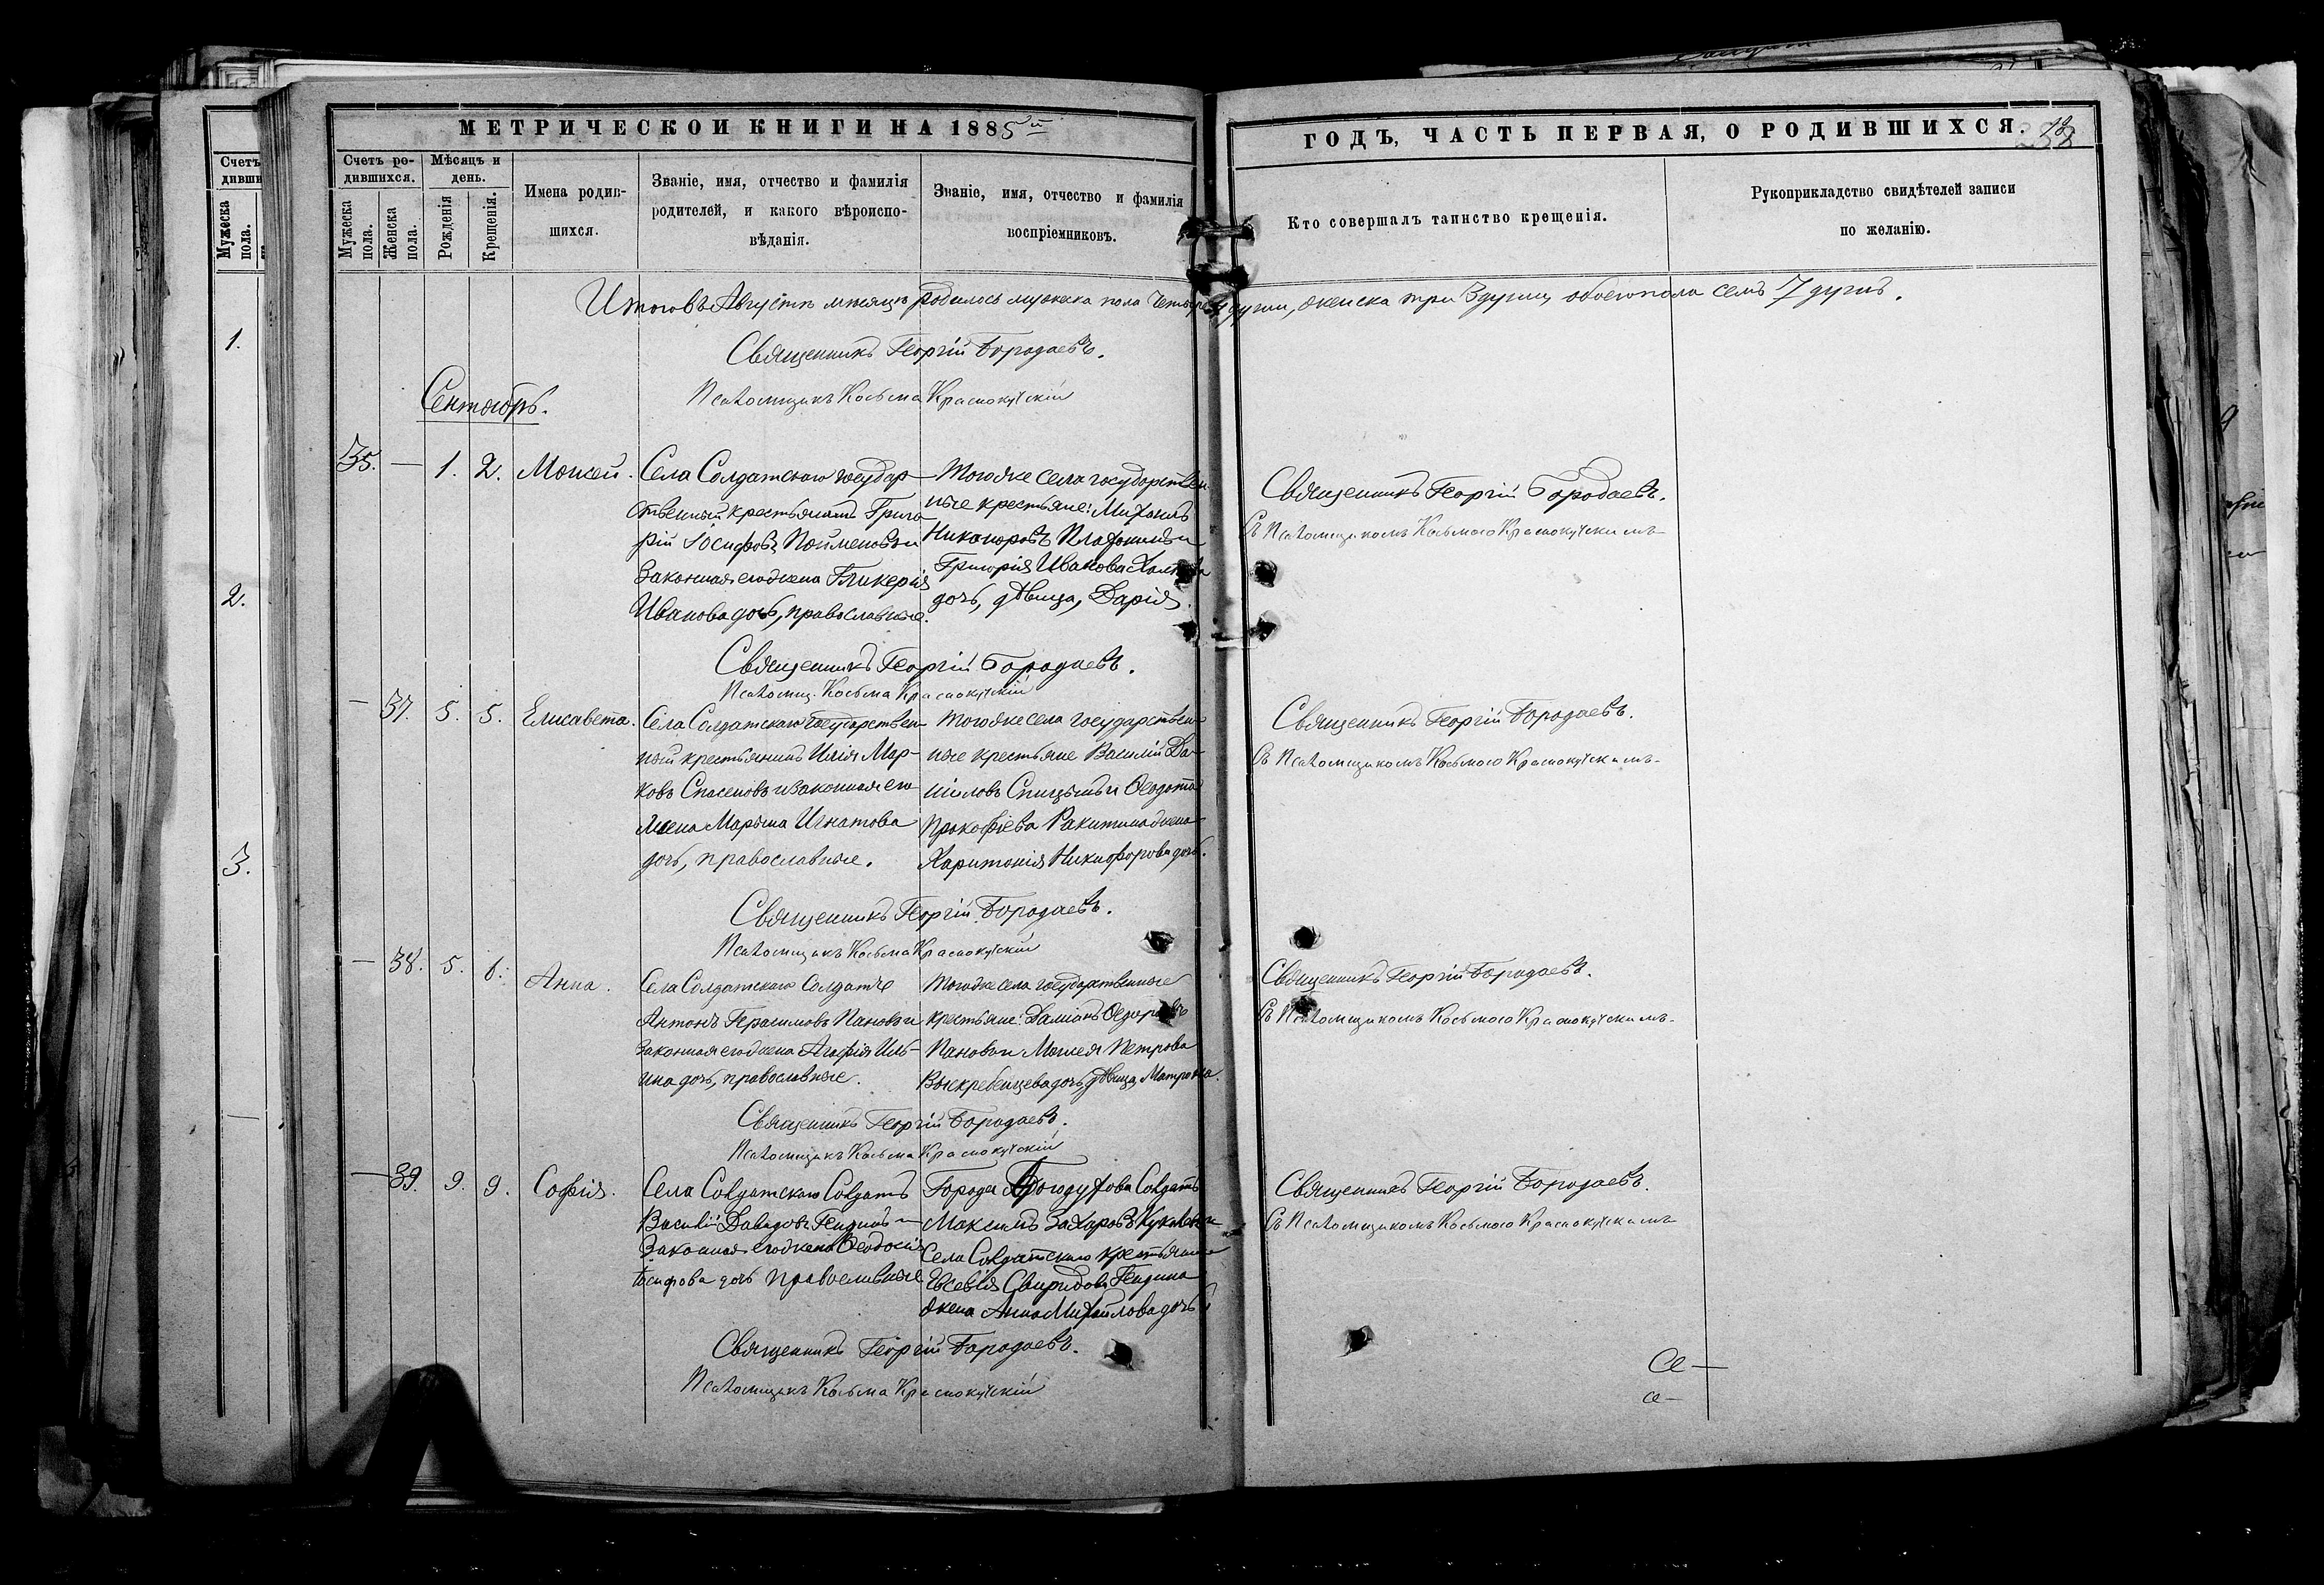 МЕТРИЧЕСКОЙ КНИГИ НА 1885й
ГОДЪ, ЧАСТЬ ПЕРВАЯ, О РОДИВШИХСЯ.
Счетъ ро-
дившихся.
Мужеска пола.
Женска пола.
Мѣсяцъ и
день.
Рожденія
Крещенія.
Имена родив-
шихся.
Званіе, имя, отчество и фамилія
родителей, и какого вѣроиспо-
вѣданія.
Званіе, имя, отчество и фамилія
воспріемниковъ.
Кто совершалъ таинство крещенія.
Рукоприкладство свидѣтелей записи
по желанію.
Счетъ
дивши
Мужеска
пола.
1.
2.
3.
Итого въ Августѣ мѣсяцѣ родилось мужеска пола четыре души, женска три 3 душы, обоего пола семъ 7 душъ.
Священникъ Георгій Бородаевъ.
Псаломщикъ Косьма Краснокутскій
Сентябрь.
35. — 1. 2. Моисей.
Села Солдатскаго государ-
ственный крестьянинъ Григо-
рій Іосифовъ Пойменовъ и
законная его жена Гликерія
Иванова дочь, православные.
Того же села государствен-
ные крестьяне: Михаилъ
Никаноровъ и
Григорія Иванова
дочь, дѣвица, Дарія.
Священникъ Георгій Бородаевъ.
Съ Псаломщикомъ Косьмою Краснокутскимъ
Священникъ Георгій Бородаевъ.
Псаломщ. Косьма Краснокутскій
— 37. 5. 5. Елисавета.
Села Солдатскаго государствен-
ный крестьянинъ Илія Мар-
ковъ Спасеновъ и законная его
жена Марѳа Игнатова
дочь, православные.
Того же села государствен-
ные крестьяне Василій Да-
ніиловъ Спицынъ и Ѳеодота
Прокофіева Ракитина жена
Харитонія Никифорова дочь.
Священникъ Георгій Бородаевъ.
Съ Псаломщикомъ Косьмою Краснокутскимъ
Священникъ Георгій Бородаевъ.
Псаломщикъ Косьма Краснокутскій
— 38. 5. 6. Анна.
Села Солдатскаго Солдатъ
Антонъ Герасимовъ Пановъ и
законная его жена Агафія Иль-
ина дочь, православные.
Того же села государственные
крестьяне: Даміанъ Ѳедоровъ
Пановъ и Моисея Петрова
Выскребенцева дочь дѣвица Матрона.
Священникъ Георгій Бородаевъ.
Съ Псаломщикомъ Косьмою Краснокутскимъ
Священникъ Георгій Бородаевъ.
Псаломщикъ Косьма Краснокутскій
— 39. 9. 9. Софія.
Села Солдатскаго Солдатъ
Василій Давидовъ Гендинъ и
законная его жена Ѳеодосія
Іосифова дочь православные
Города Богодухова Солдатъ
Максимъ Захаровъ и
Села Солдатскаго крестьянина
Евсевія Свиридова Гендина
жена Анна Михайлова дочь
Священникъ Георгій Бородаевъ.
Съ Псаломщикомъ Косьмою Краснокутскимъ
Священникъ Георгій Бородаевъ.
Псаломщикъ Косьма Краснокутскій